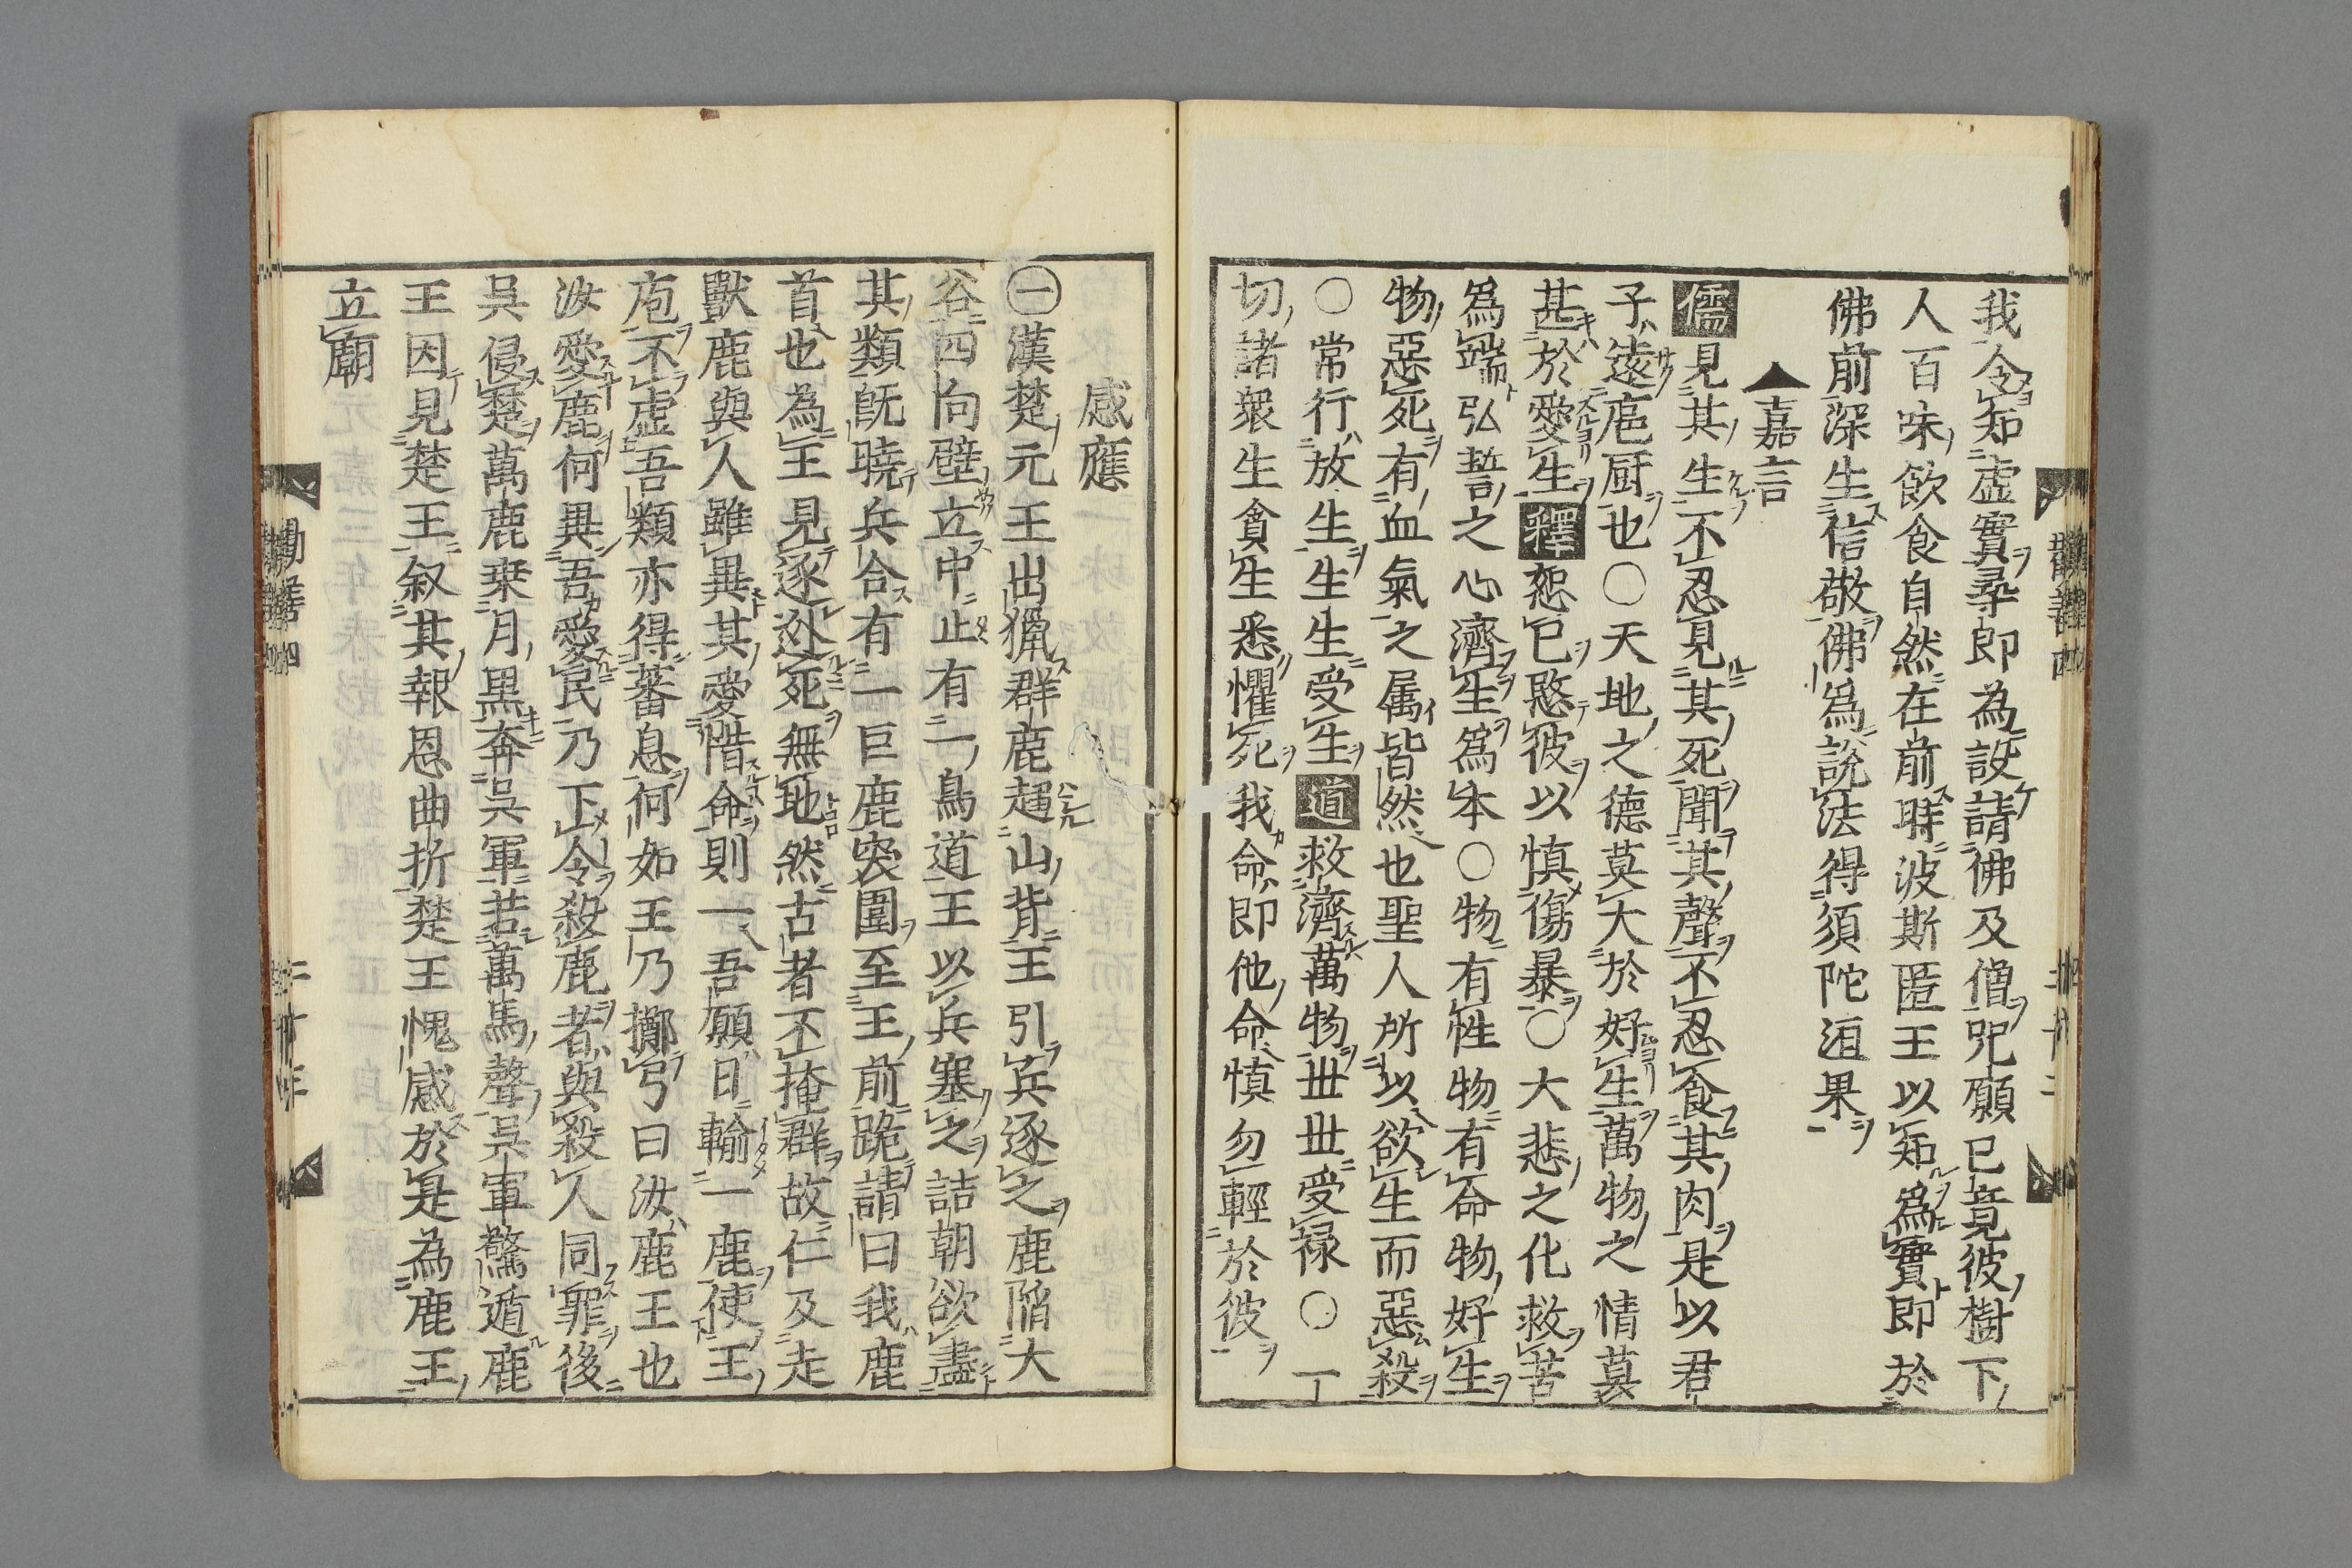 我令知虛實尋即為設請佛及僧咒願已竟彼樹下
人百味飲食自然在前時波斯匿王以知爲實即於
佛前深生信敬佛爲說法得須陀洹果
嘉言
儒見其生不忍見其死聞其聲不忍食其肉是以君
子遠庖厨也〇天地之德莫大於好生萬物之情莫
甚於愛生釋恕已愍彼以慎傷暴〇大悲之化救苦
爲端弘誓之心濟生爲本〇物有性物有命物好生
物惡死有血氣之属皆然也聖人所以欲生而惡殺
〇常行放生生生受生道救濟萬物世世受禄〇一
切諸衆生貪生悉懼死我命即他命慎勿輕於彼
感應
㊀漢楚元王出獵群鹿超山背王引兵逐之鹿陷大
谷四向壁立中止有一鳥道王以兵塞之詰朝欲盡
其類既曉兵合有一巨鹿突圍至王前跪請曰我鹿
首也為王見逐迯死無地然古者不掩群故仁及走
獸鹿與人雖異其愛惜命則一吾願日輸一鹿使王
庖不虛吾類亦得蕃息何如王乃擲弓曰汝鹿王也
汝愛鹿何異吾愛民乃下令殺鹿者與殺人同罪後
吳侵楚萬鹿乗月黒奔吳軍若萬馬聲吳軍驚遁鹿
王因見楚王叙其報恩曲折楚王愧感於是為鹿王
立廟
勸善四